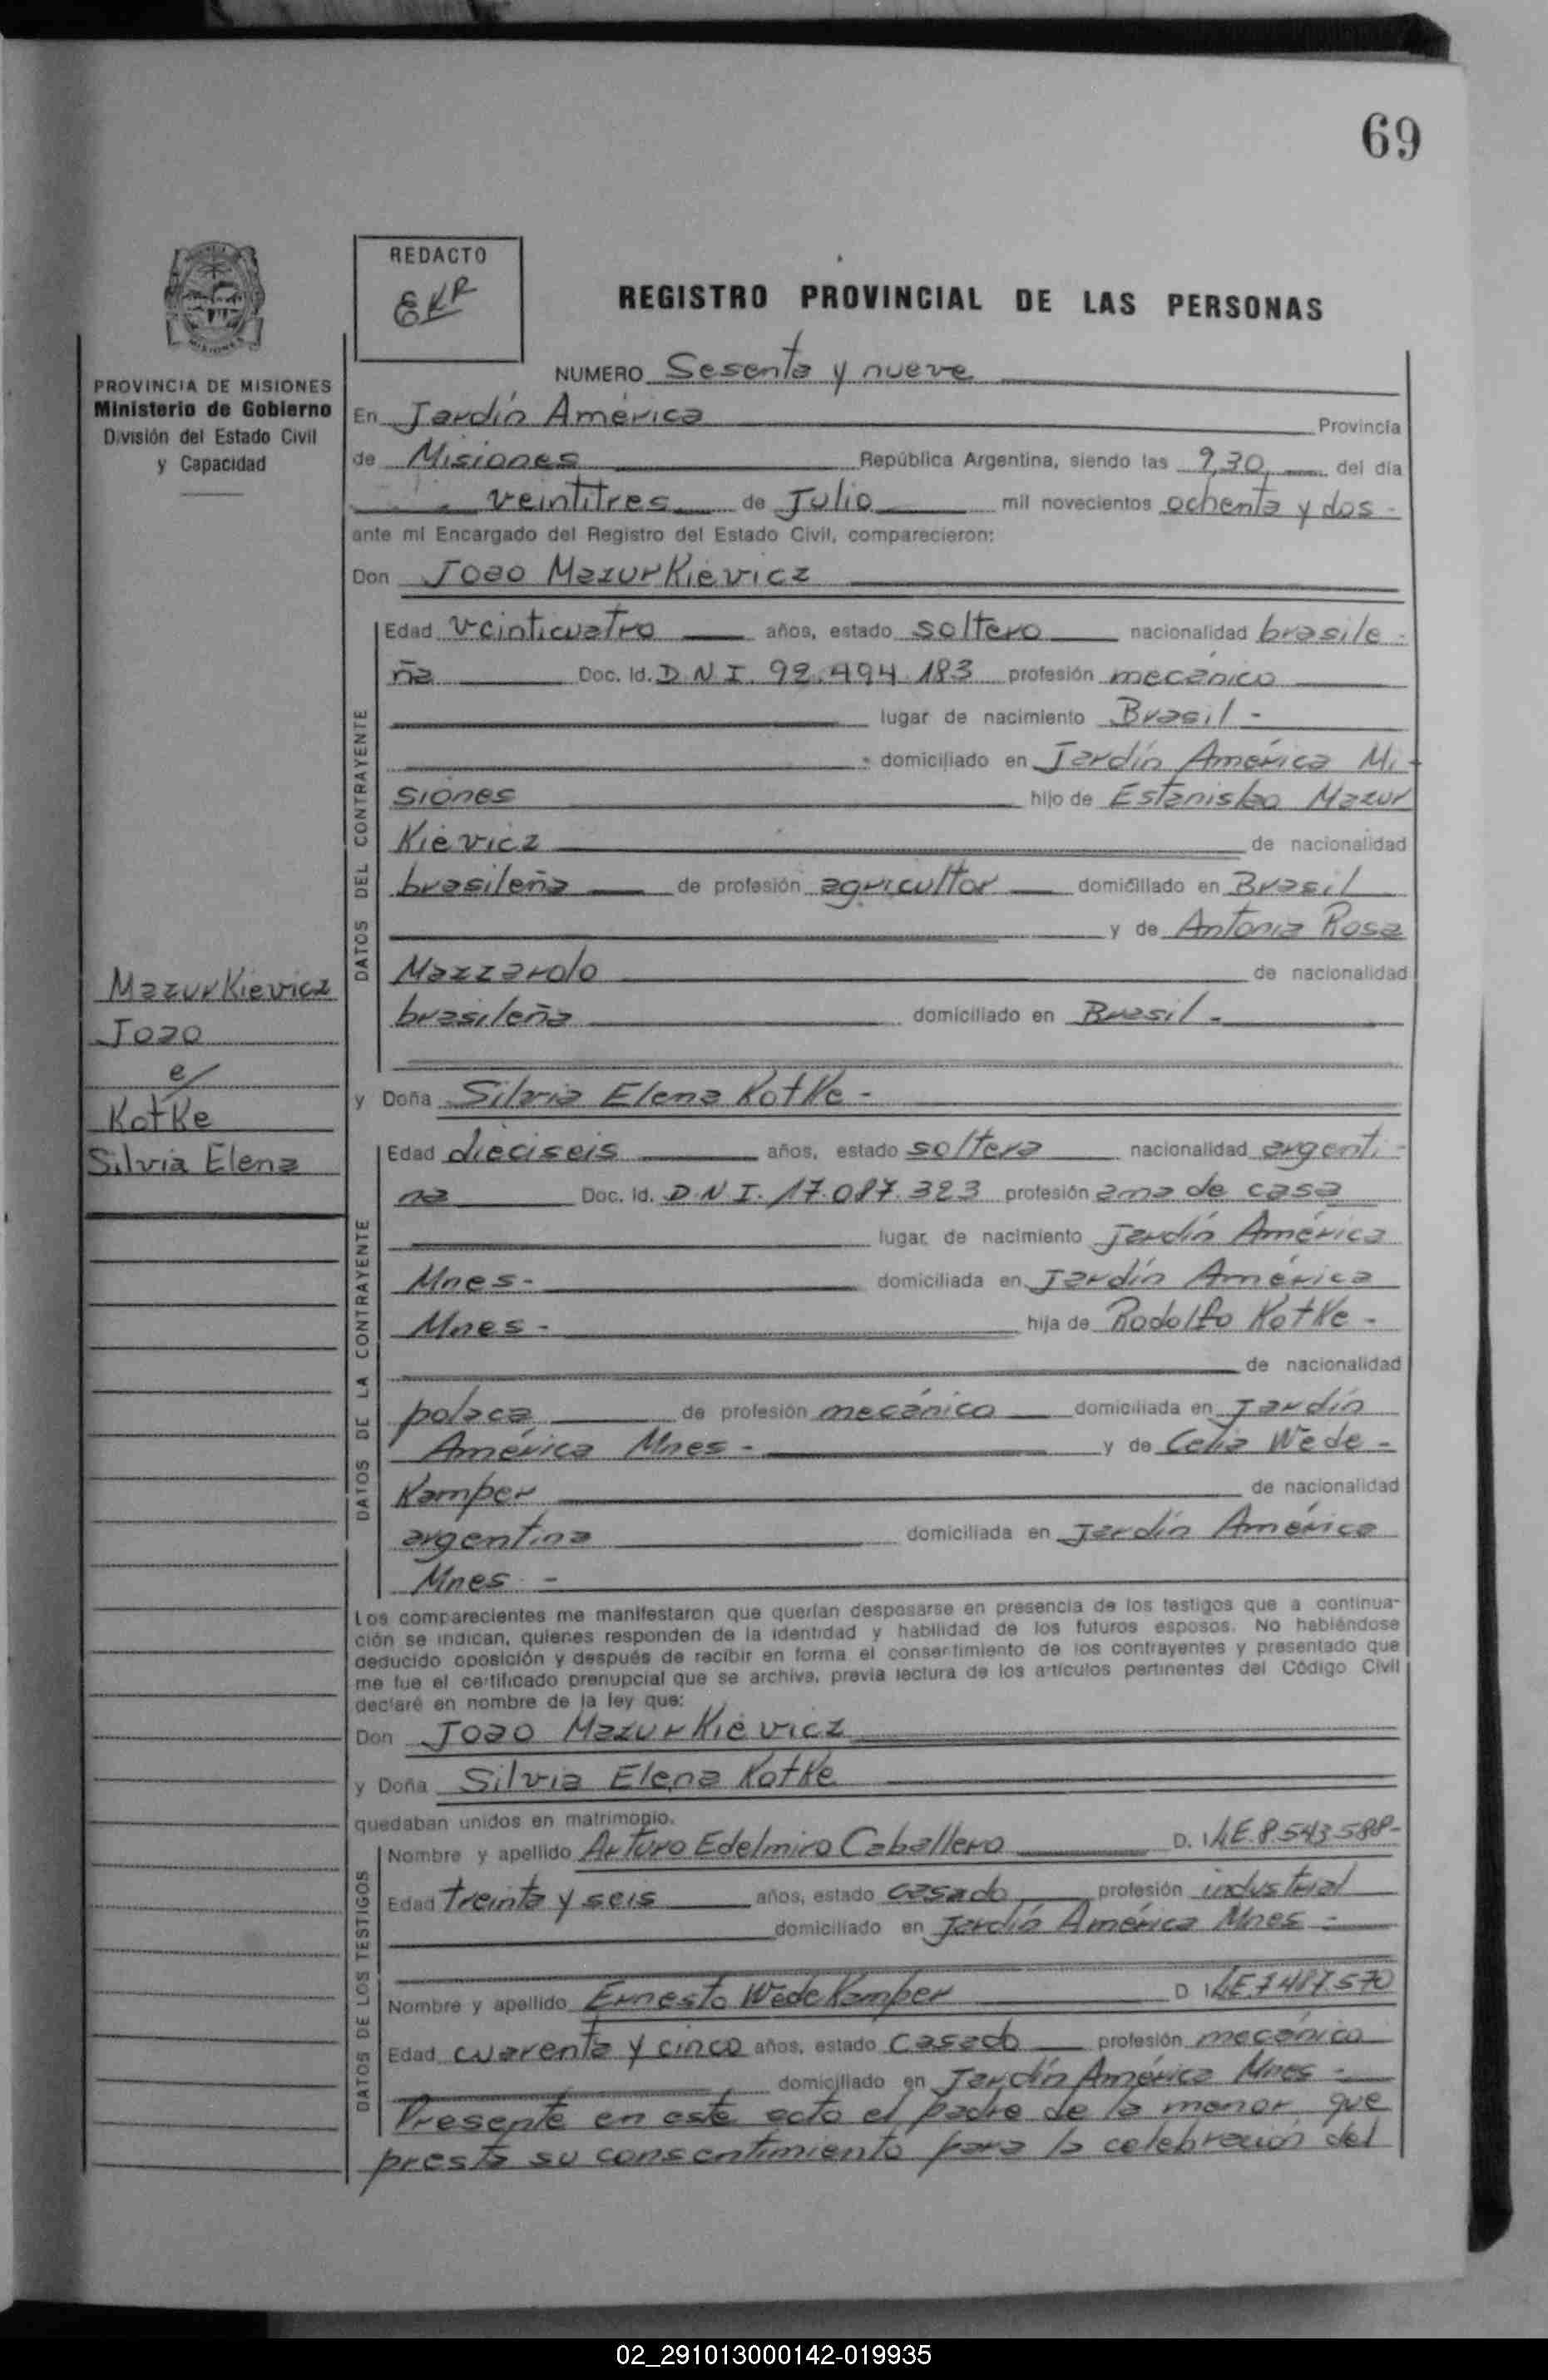 69
REDACTO
EKR
REGISTRO PROVINCIAL DE LAS PERSONAS
PROVINCIA DE MISIONES
Ministerio de Gobierno
División del Estado Civil
y Capacidad
NUMERO Sesenta y nueve
En Jardín América Provincia
de Misiones República Argentina, siendo las 9,30, del día
veintitres de Julio mil novecientos ochenta y dos -
ante mi Encargado del Registro del Estado Civil, comparecieron:
Don Joao MazurKievicz
DATOS DEL CONTRAYENTE
Edad veinticuatro años, estado soltero nacionalidad brasile-
ña Doc. Id. D.N.I. 92.494.183 profesión mecánico
lugar de nacimiento Brasil -
domiciliado en Jardín América Mi-
siones hijo de Estanislao Mazur
Kievicz de nacionalidad
brasileña de profesión agricultor domiciliado en Brasil
y de Antonia Rosa
Mazzarolo de nacionalidad
brasileña domiciliado en Brasil -
MazurKievicz
Joao
c/
Kotke
Silvia Elena
y Doña Silvia Elena Kotke -
DATOS DE LA CONTRAYENTE
Edad dieciseis años, estado soltera nacionalidad argenti-
na Doc. Id. D.N.I. 17.087.323 profesión ama de casa
lugar de nacimiento Jardín América
Mnes - domiciliada en Jardín América
Mnes - hija de Rodolfo Kotke -
de nacionalidad
polaca de profesión mecánico domiciliada en Jardín
América Mnes - y de Celia Wede -
Kamper de nacionalidad
argentina domiciliada en Jardín América
Mnes -
Los comparecientes me manifestaron que querían desposarse en presencia de los testigos que a continua-
ción se indican, quienes responden de la identidad y habilidad de los futuros esposos. No habiéndose
deducido oposición y después de recibir en forma el consertimiento de los contrayentes y presentado que
me fue el certificado prenupcial que se archiva, previa lectura de los artículos pertinentes del Código Civil
declaré en nombre de la ley que:
Don Joao MazurKievicz
y Doña Silvia Elena Kotke
quedaban unidos en matrimonio.
DATOS DE LOS TESTIGOS
Nombre y apellido Arturo Edelmiro Caballero D. I. LE.8.543.588-
Edad treinta y seis años, estado casado profesión industrial
domiciliado en Jardín América Mnes -
Nombre y apellido Ernesto WedeKamper D. I. LE.7.487.570
Edad cuarenta y cinco años, estado casado profesión mecánico
domiciliado en Jardín América Mnes -
Presente en este acto el padre de la menor que
presta su consentimiento para la celebración del
02_291013000142-019935